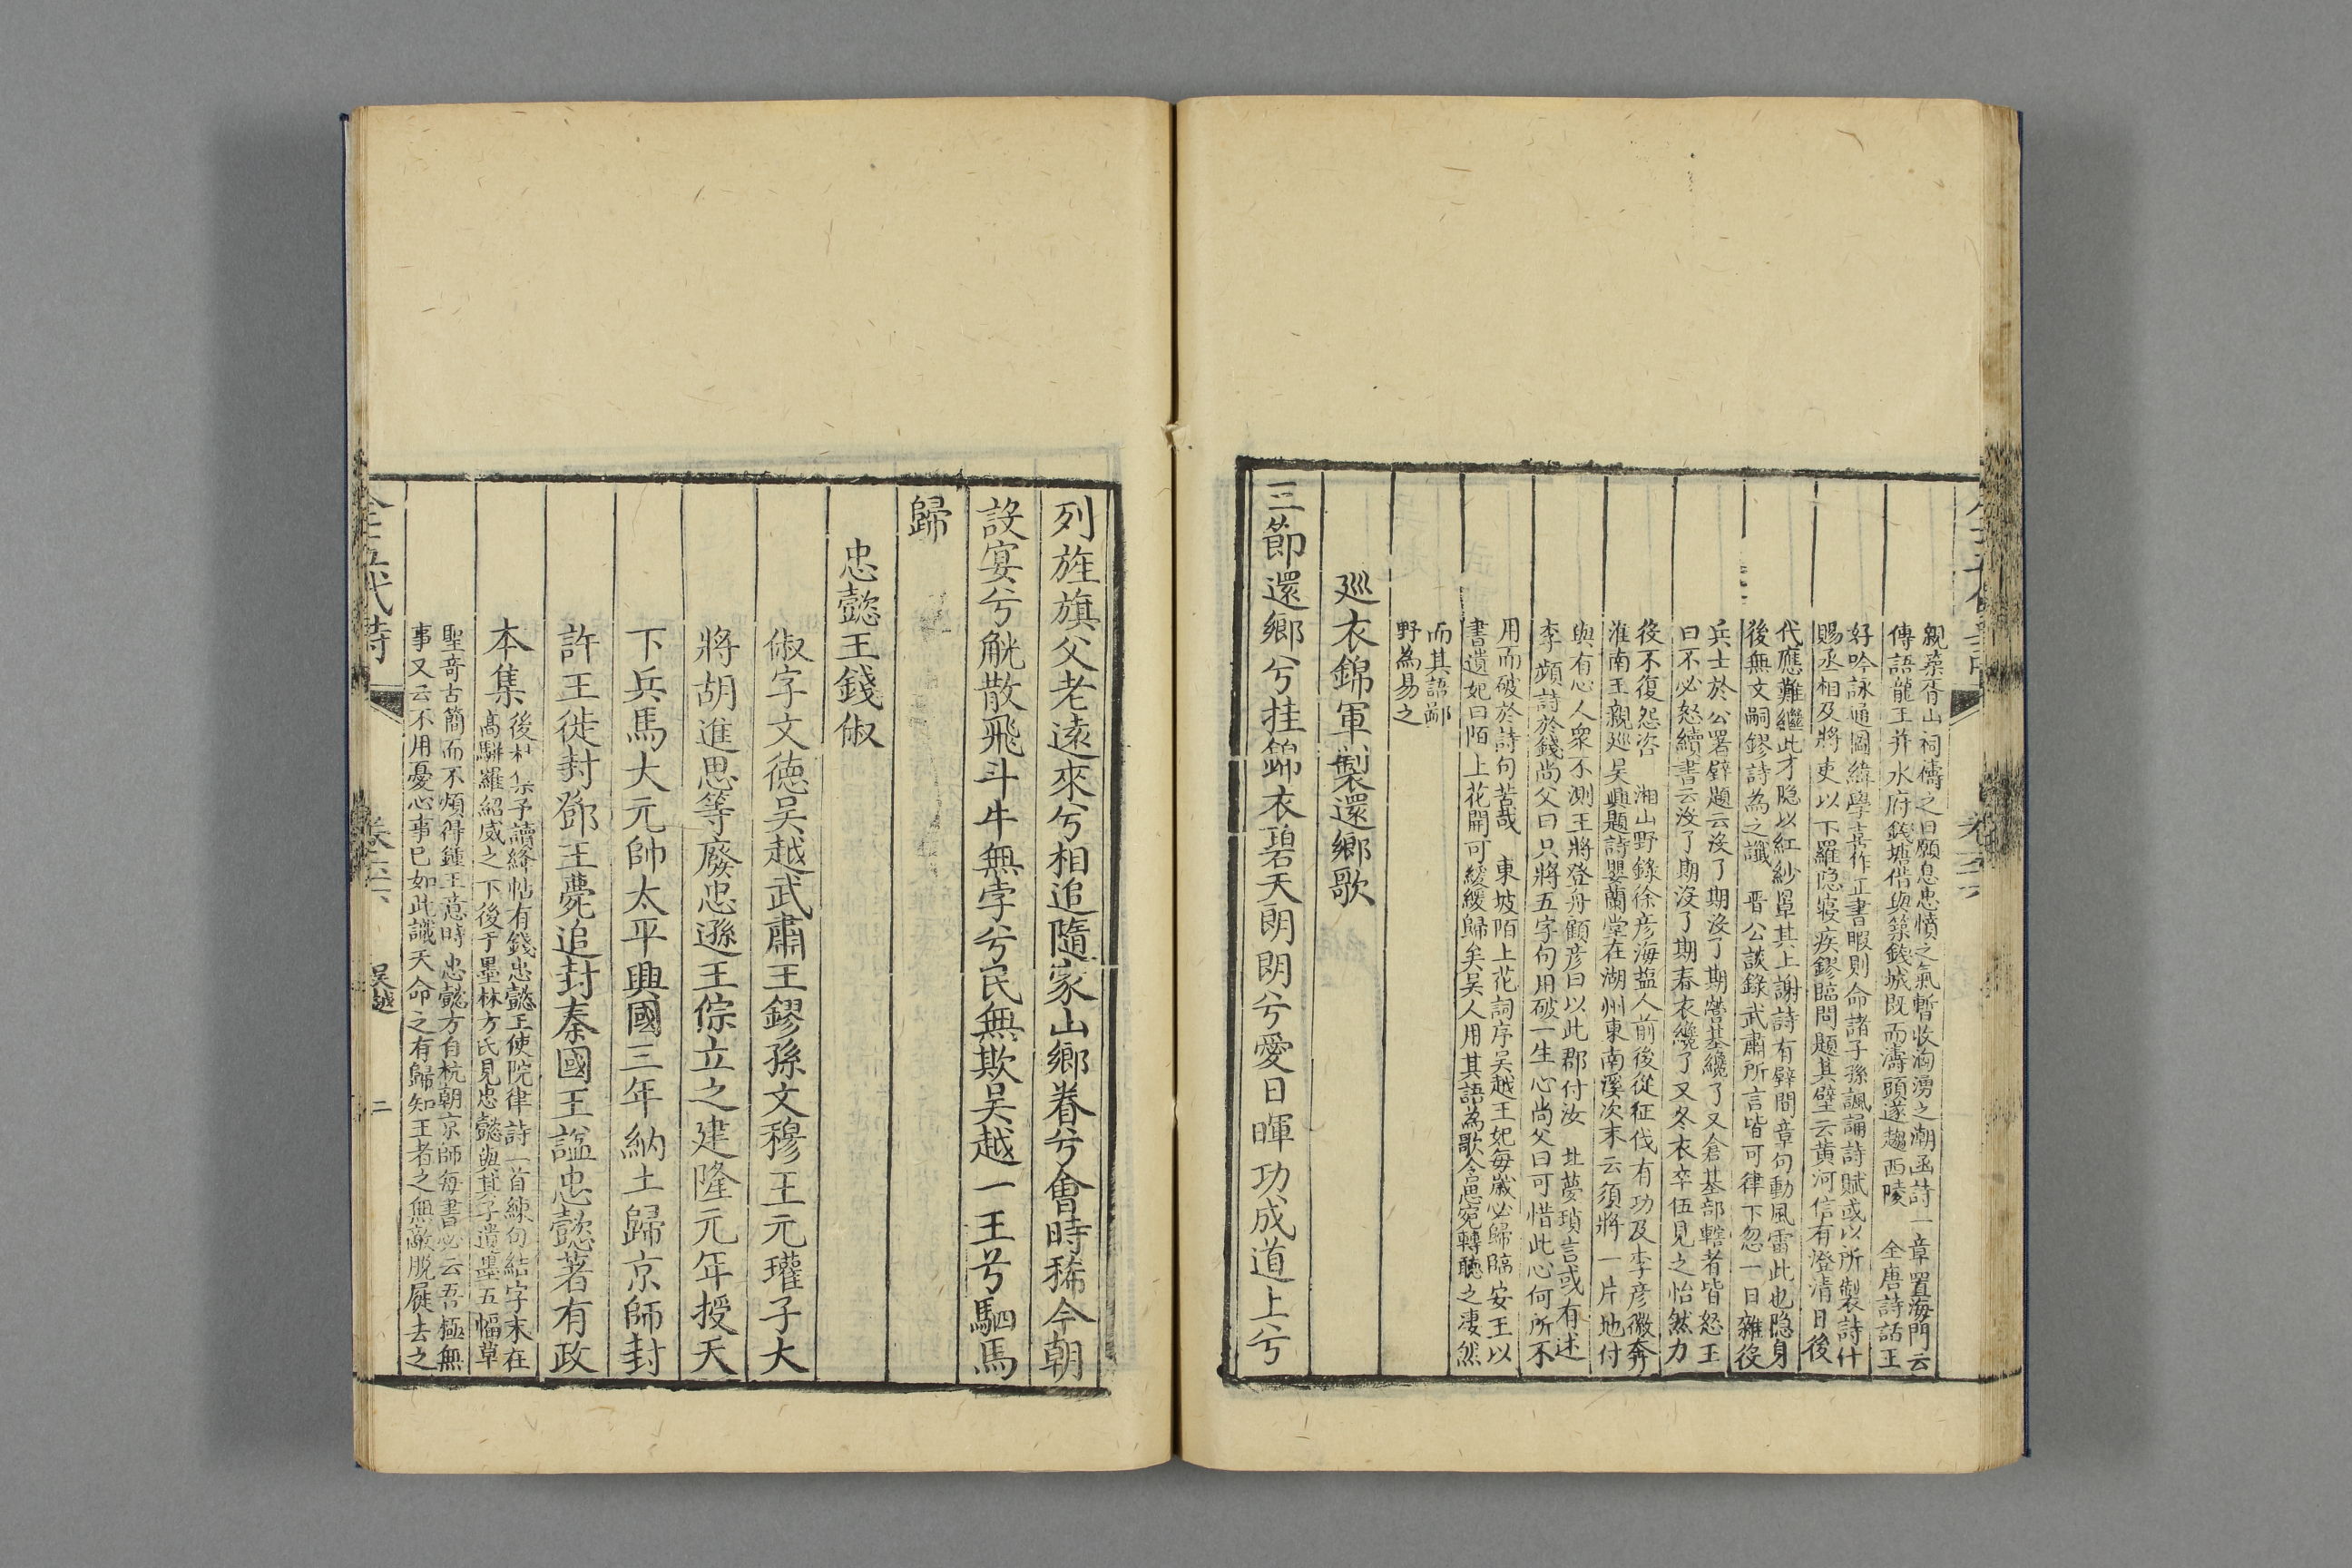 親桑胥山祠禱之曰願息忠憤之氣暫收洶湧之潮函詩一章置海門云
傳語龍王并水府錢塘借與築錢城既而濤頭遂趨西陵　全唐詩話王
好吟詠通圖緯學喜作正書暇則命諸子孫諷誦詩賦或以所製詩什
賜丞相及將吏以下羅隐寢疾鏐臨問題其壁云黄河信有澄清日後
代應難繼此才隐以紅紗罩其上謝詩有壁間章句動風雷此也隐身
後無文嗣鏐詩為之讖　晋公談錄武肅所言皆可律下忽一日雜役
兵士於公署壁題云没了期没了期營基纔了又倉基部轄者皆怒王
曰不必怒續書云没了期没了期春衣纔了又冬衣卒伍見之怡然力
役不復怨咨　湘山野錄徐彦海盐人前後從征伐有功及李彦徽奔
淮南王親廵吴興題詩嬰蘭堂在湖州東南溪次末云須將一片地付
與有心人衆不測王將登舟顧彦曰以此郡付汝　北夢瑣言或有述
李頻詩於錢尚父曰只將五字句用破一生心尚父曰可惜此心何所不
用而破於詩句苦哉　東坡陌上花詞序吴越王妃每歲必歸臨安王以
書遺妃曰陌上花開可緩緩歸矣吴人用其語為歌含思宛轉聽之凄然
而其語鄙
野為易之
廵衣錦軍製還鄉歌
三節還鄉兮挂錦衣碧天朗朗兮愛日暉功成道上兮
列旌旗父老遠來兮相追隨家山鄉眷兮會時稀今朝
設宴兮觥散飛斗牛無孛兮民無欺吴越一王兮駟馬
歸
忠懿王錢俶
俶字文德吴越武肅王鏐孫文穆王元瓘子大
將胡進思等廢忠遜王倧立之建隆元年授天
下兵馬大元帥太平興國三年納土歸京師封
許王徙封鄧王薨追封秦國王諡忠懿著有政
本集
後村集予讀絳帖有錢忠懿王使院律詩一首練句結字末在
高駢羅紹威之下後于墨林方氏見忠懿與其子遺墨五幅草
聖竒古簡而不煩得鍾王意時忠懿方自杭朝京師每書必云吾極無
事又云不用憂心事已如此識天命之有歸知王者之無敵脱屣去之
全五代詩
卷
吴越
二